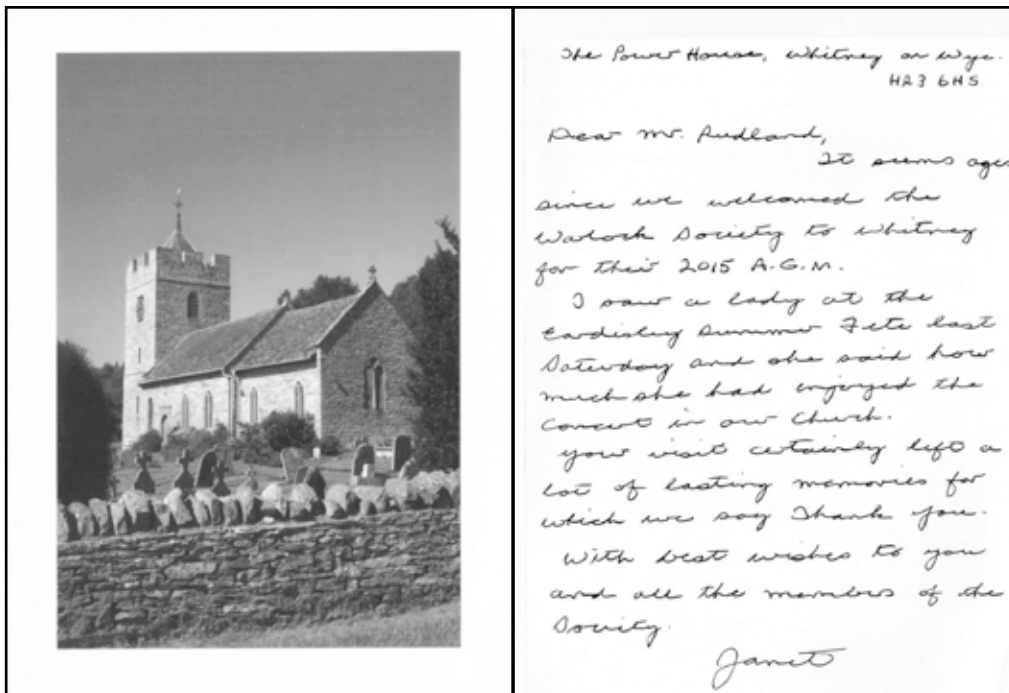 The Power House, Whitney on Wye.
HR3 6HS
Dear Mr. Rudland,
It seems ages
since we welcomed the
Warlock Society to Whitney
for their 2015 A.G.M.
I saw a lady at the
Eardisley Summer Fete last
Saturday and she said how
much she had enjoyed the
Concert in our Church.
Your visit certainly left a
lot of lasting memories for
which we say Thank you.
With best wishes to you
and all the members of the
Society.
Janet